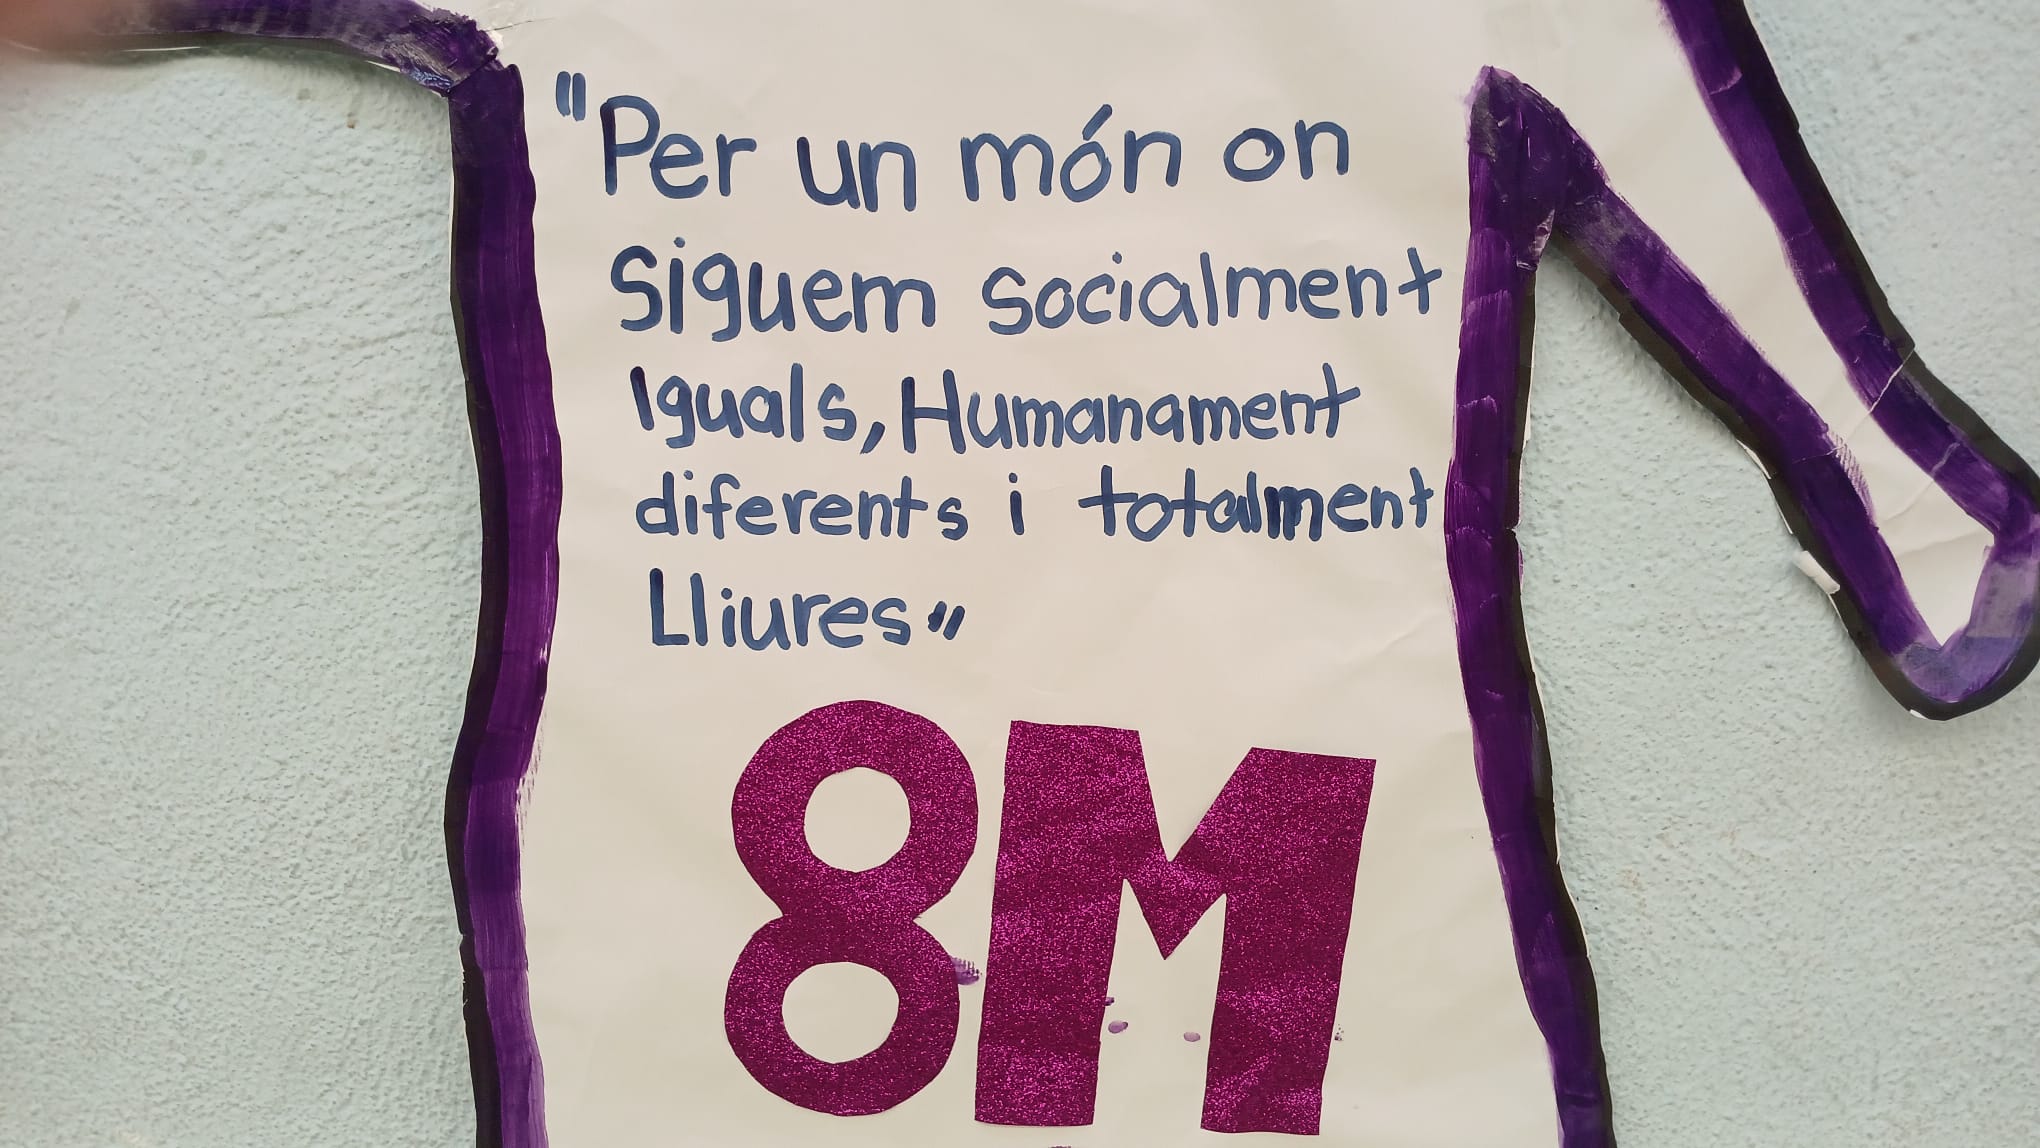 "Per un món on
Siguem socialment
Iguals, Humanament
diferents i totalment
Lliures"
8M